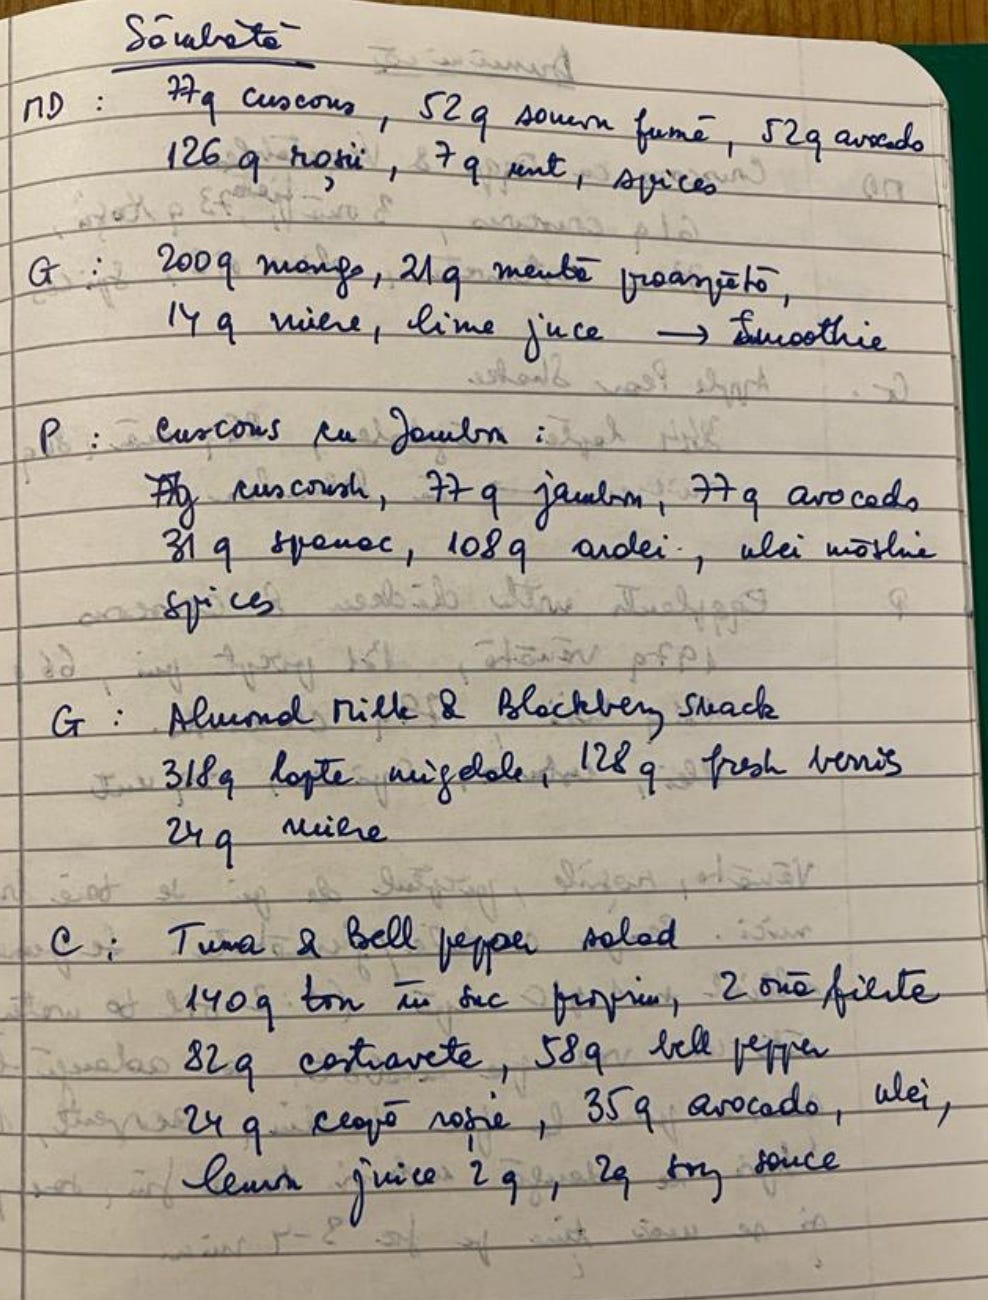 Sâmbătă
MD : 77g cuscous, 52g somon fumé, 52g avocado
126 g roșii, 7g unt, spices
G : 200g mango, 21g mentă proaspătă,
14 g miere, lime juce → Smoothie
P : Cuscous cu Jambon :
cuscoush, 77 g jambon, 77g avocado
31 g spanac, 108g ardei, ulei măsline
spices
G : Almond Milk & Blackberry snack
318g lapte migdale, 128g fresh berris
24 g miere
C : Tuna & Bell pepper salad
140g ton în suc propriu, 2 ouă fierte
82g castravete, 58g bell pepper
24 g ceapă roșie, 35g avocado, ulei,
lemon juice 2 g, 2g soy souce